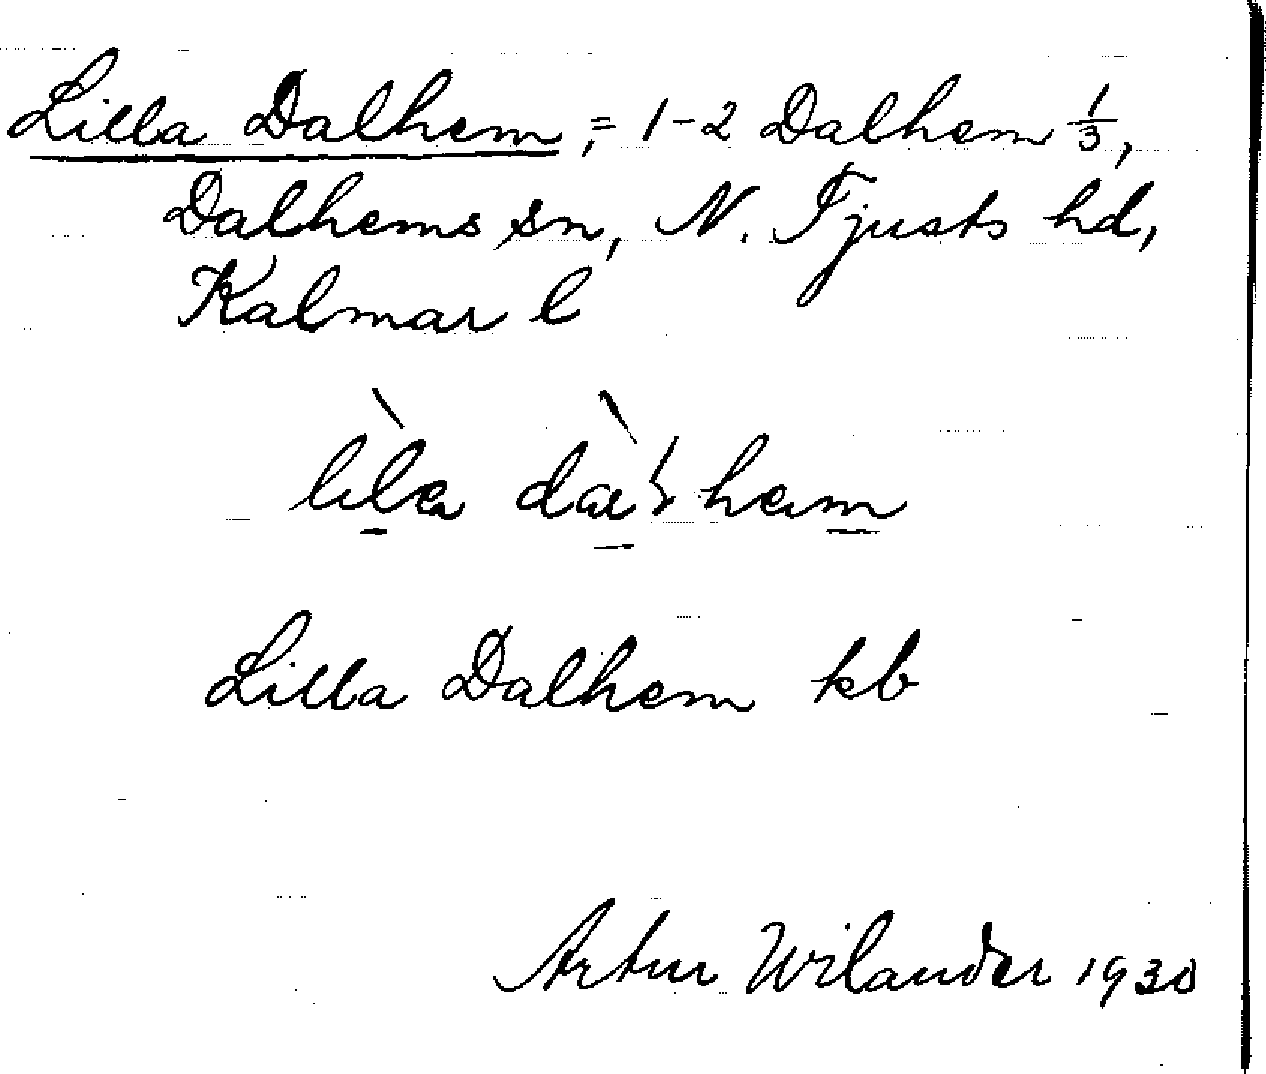 Lilla Dalhem, = 1-2 Dalhem 1/3,
Dalhems sn, N. Tjusts hd,
Kalmar l
Lilla Dalhem kb
Artur Wilander 1930